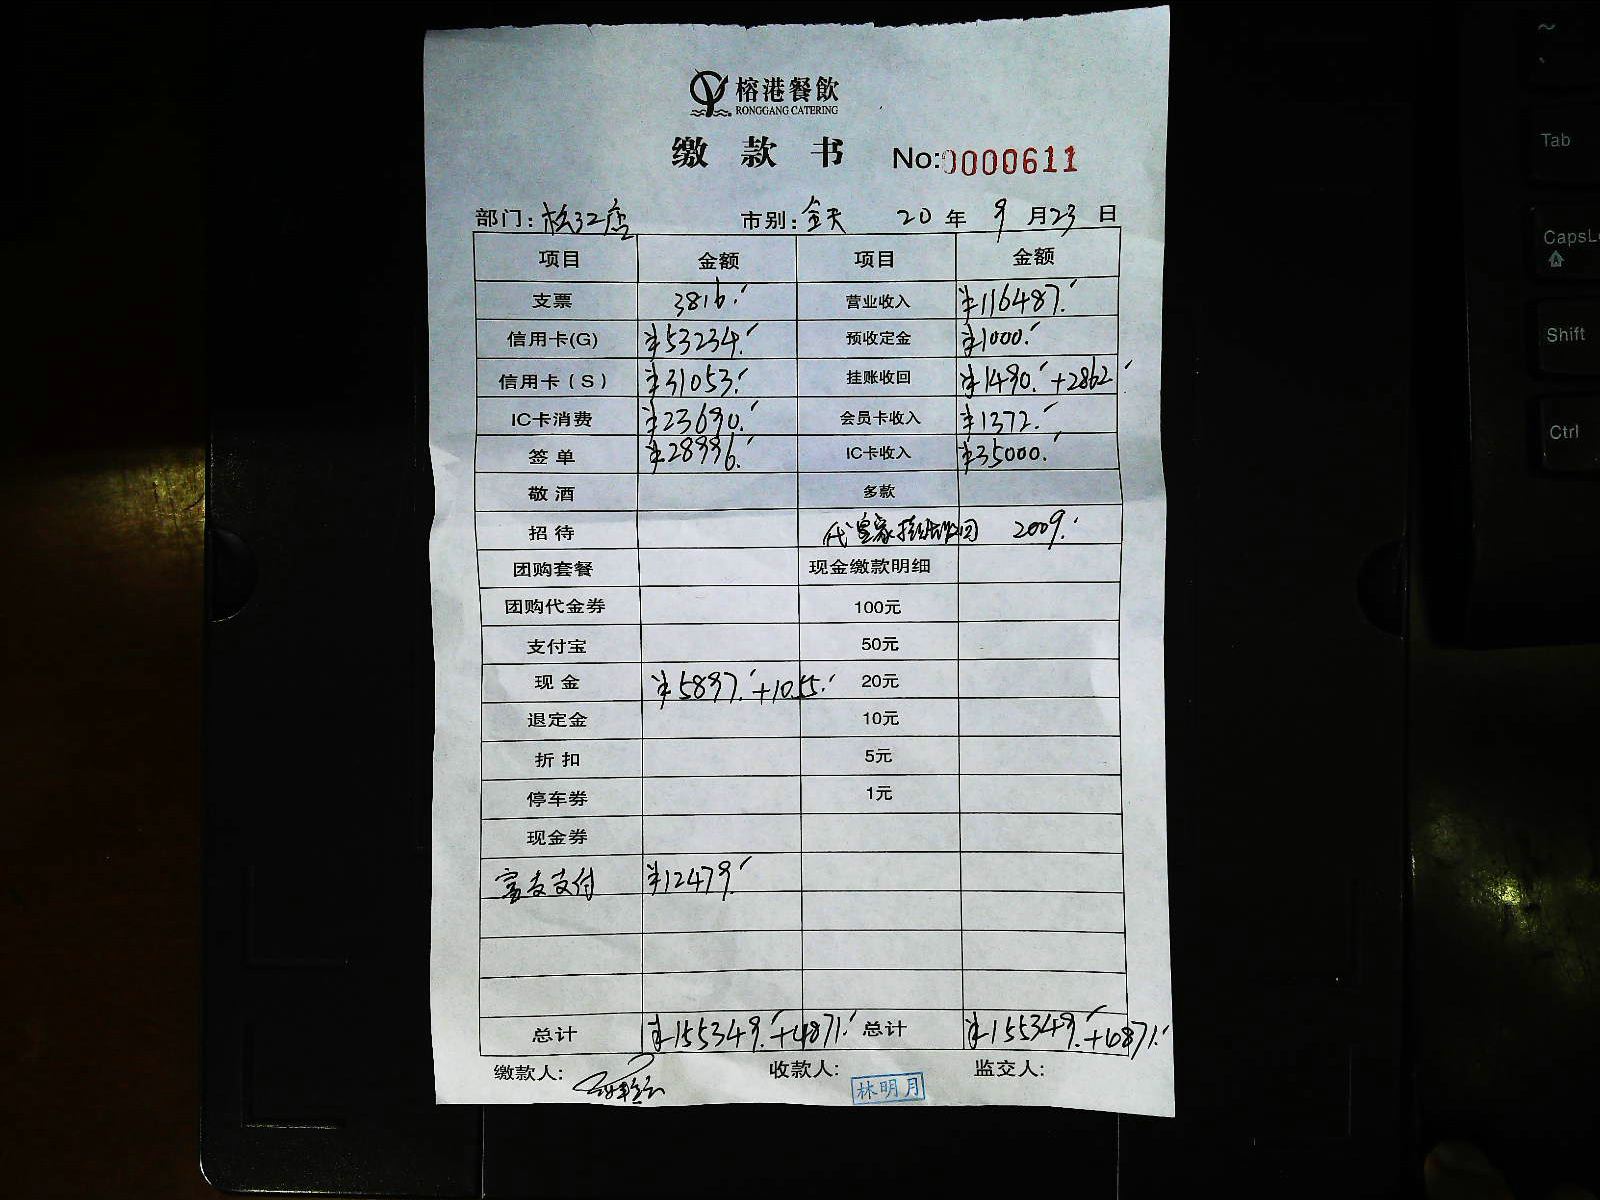 榕港餐飲
RONGGANG CATERING
缴款书 No:0000611
部门: 松江店 市别: 全天 20 年 9 月 23 日
项目 金额 项目 金额
支票 3816. 营业收入 ¥116487.
信用卡(G) ¥53234. 预收定金 ¥1000.
信用卡(S) ¥31053. 挂账收回 ¥1490. +2862
IC卡消费 ¥23690. 会员卡收入 ¥1372.
签单 ¥28996. IC卡收入 ¥35000.
敬酒 多款
招待 代皇家挂账收回 2009.
团购套餐 现金缴款明细
团购代金券 100元
支付宝 50元
现金 ¥5897. +1055. 20元
退定金 10元
折扣 5元
停车券 1元
现金券
支付 ¥12479.
总计 ¥155349. +4871. 总计 ¥155349. +4871.
缴款人: 收款人: 林明月 监交人:
~
Tab
CapsLo
Shift
Ctrl